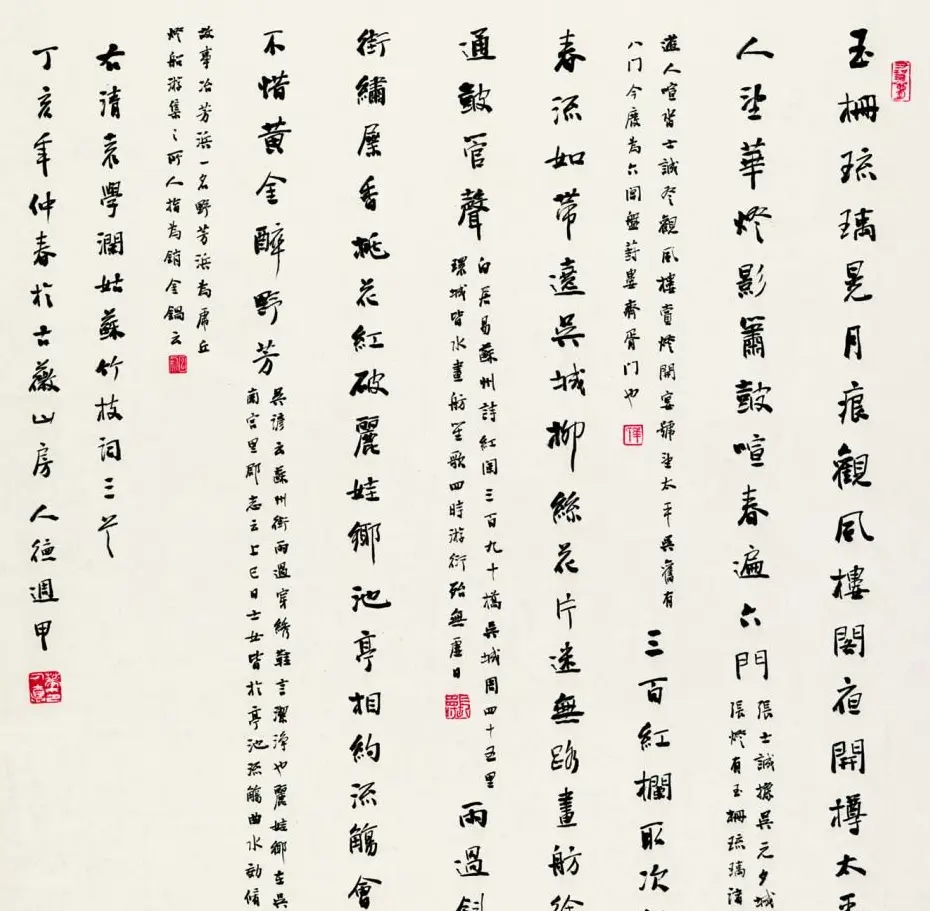 玉柵琉璃晃月痕觀風樓閣夜開樽太平
人坐華燈影簫鼓喧春遍六門
張士誠據吳元夕城
張燈有玉柵琉璃諸
遊人喧沓士誠登觀風樓賞燈開宴號坐太平吳舊有
八門今廢為六閶盤葑婁齊胥門也
三百紅欄取次
春流如帶遶吳城柳絲花片迷無路畫舫徐
通鼓管聲
白居易蘇州詩紅闌三百九十橋吳城周四十五里
環城皆水畫舫笙歌四時游衍殆無虛日
雨過斜
街繡屧香桃花紅破麗娃鄉池亭相約流觴會
不惜黃金醉野芳
吳諺云蘇州街雨過穿綉鞋言潔淨也麗娃鄉在吳
南宮里郡志云上巳日士女皆於亭池流觴曲水効脩
故事冶芳浜一名野芳浜為虎丘
燈船游集之所人指為銷金鍋云
右清袁學瀾姑蘇竹枝詞三首
丁亥年仲春於古薇山房人德週甲